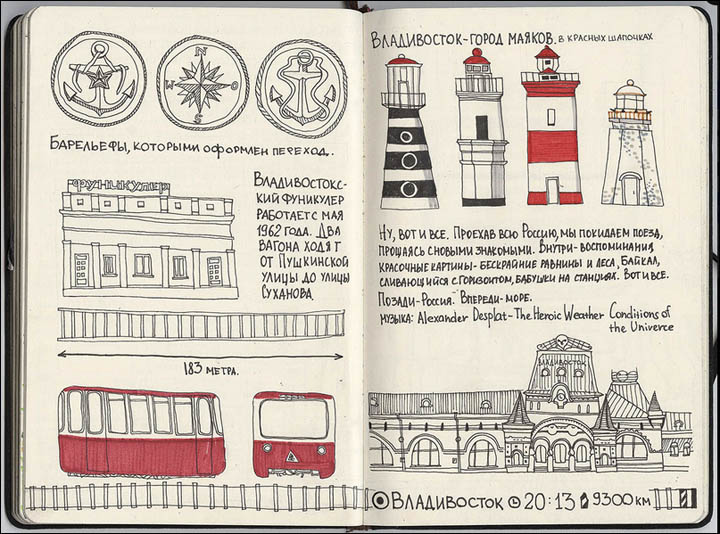 N
W O
S
Барельефы, которыми оформлен переход..
ФУНИКУЛЕР
Владивостокс-
кий фуникулер
работает с мая
1962 года. Два
вагона ходят
от Пушкинской
улицы до улицы
Суханова
183 метра.
Владивосток-город маяков. в красных шапочках
Ну, вот и все. Проехав всю Россию, мы покидаем поезд,
прощаясь с новыми знакомыми. Внутри-воспоминания,
красочные картины-бескрайние равнины и леса, Байкал,
сливающийся с горизонтом, бабушки на станциях. Вот и все.
Позади-Россия. Впереди-море.
музыка: Alexander Desplat-The Heroic Weather Conditions of
the Univerce
ВЛАДИВОСТОК
Владивосток 20:13 9300 км